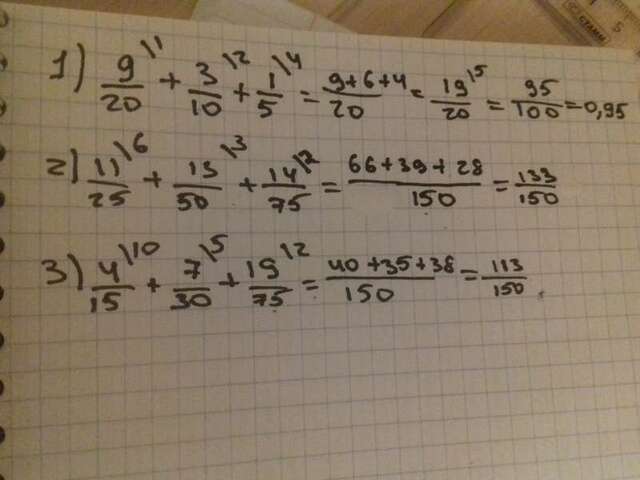 СТАММ
5
1) 9/20 \1 + 3/10 \2 + 1/5 \4 = 9+6+4/20 = 19/20 \5 = 95/100 = 0,95
2) 11/25 \6 + 13/50 \3 + 14/75 \2 = 66+39+28/150 = 133/150
3) 4/15 \10 + 7/30 \5 + 19/75 \2 = 40+35+38/150 = 113/150.